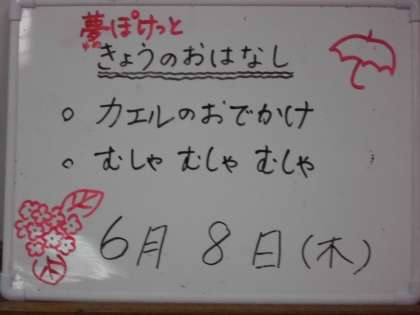 夢ぽけっと
きょうのおはなし
○ カエルのおでかけ
○ むしゃ むしゃ むしゃ
6月 8日(木)